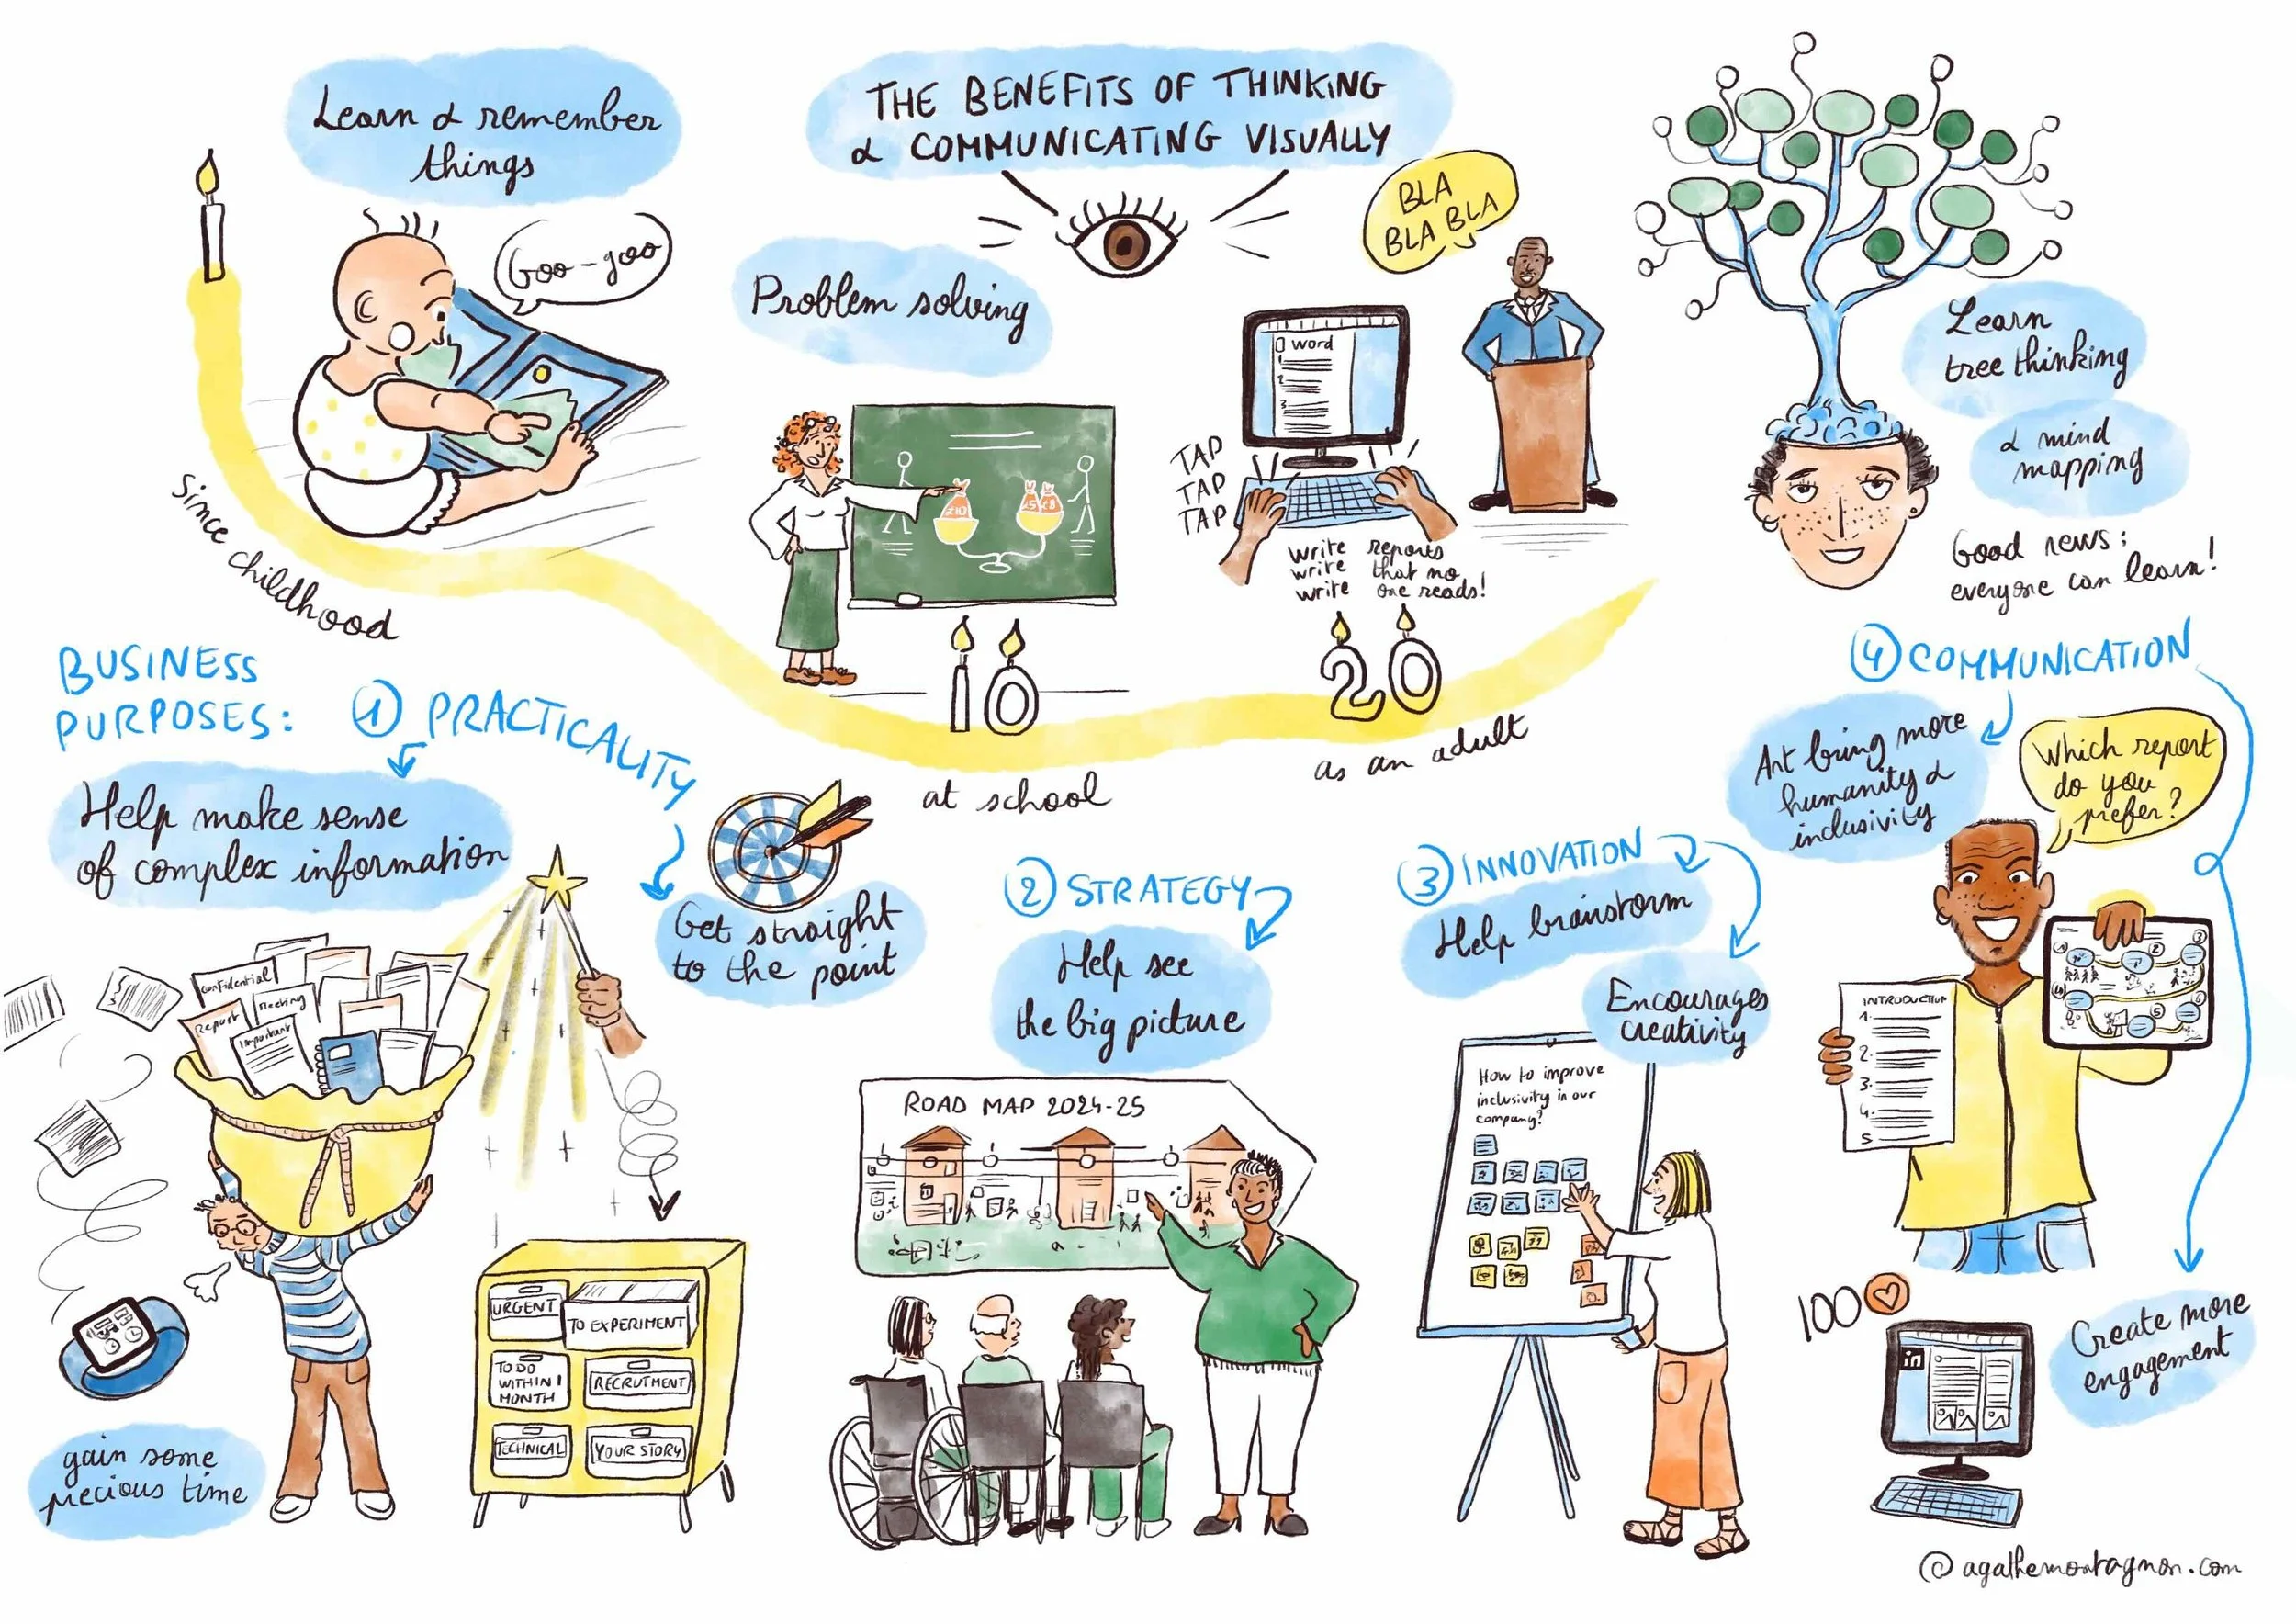 THE BENEFITS OF THINKING
& COMMUNICATING VISUALLY
Learn & remember
things
Goo-goo
since childhood
Problem solving
at school
10
BLA
BLA BLA
word
1
2
3
TAP
TAP
TAP
write reports
write that no
write one reads!
20
as an adult
Learn
tree thinking
& mind
mapping
Good news:
everyone can learn!
BUSINESS
PURPOSES:
1 PRACTICALITY
Help make sense
of complex information
Get straight
to the point
Confidential
Meeting
Report
Important
gain some
precious time
URGENT
TO EXPERIMENT
TO DO
WITHIN 1
MONTH
RECRUTMENT
TECHNICAL
YOUR STORY
2 STRATEGY
Help see
the big picture
ROAD MAP 2024-25
3 INNOVATION
Help brainstorm
Encourages
creativity
How to improve
inclusivity in our
company?
4 COMMUNICATION
Art bring more
humanity &
inclusivity
Which report
do you
prefer?
INTRODUCTION
1.
2.
3.
4.
5
1
2
3
4
5
6
100
in
Create more
engagement
© agathemontagnon.com